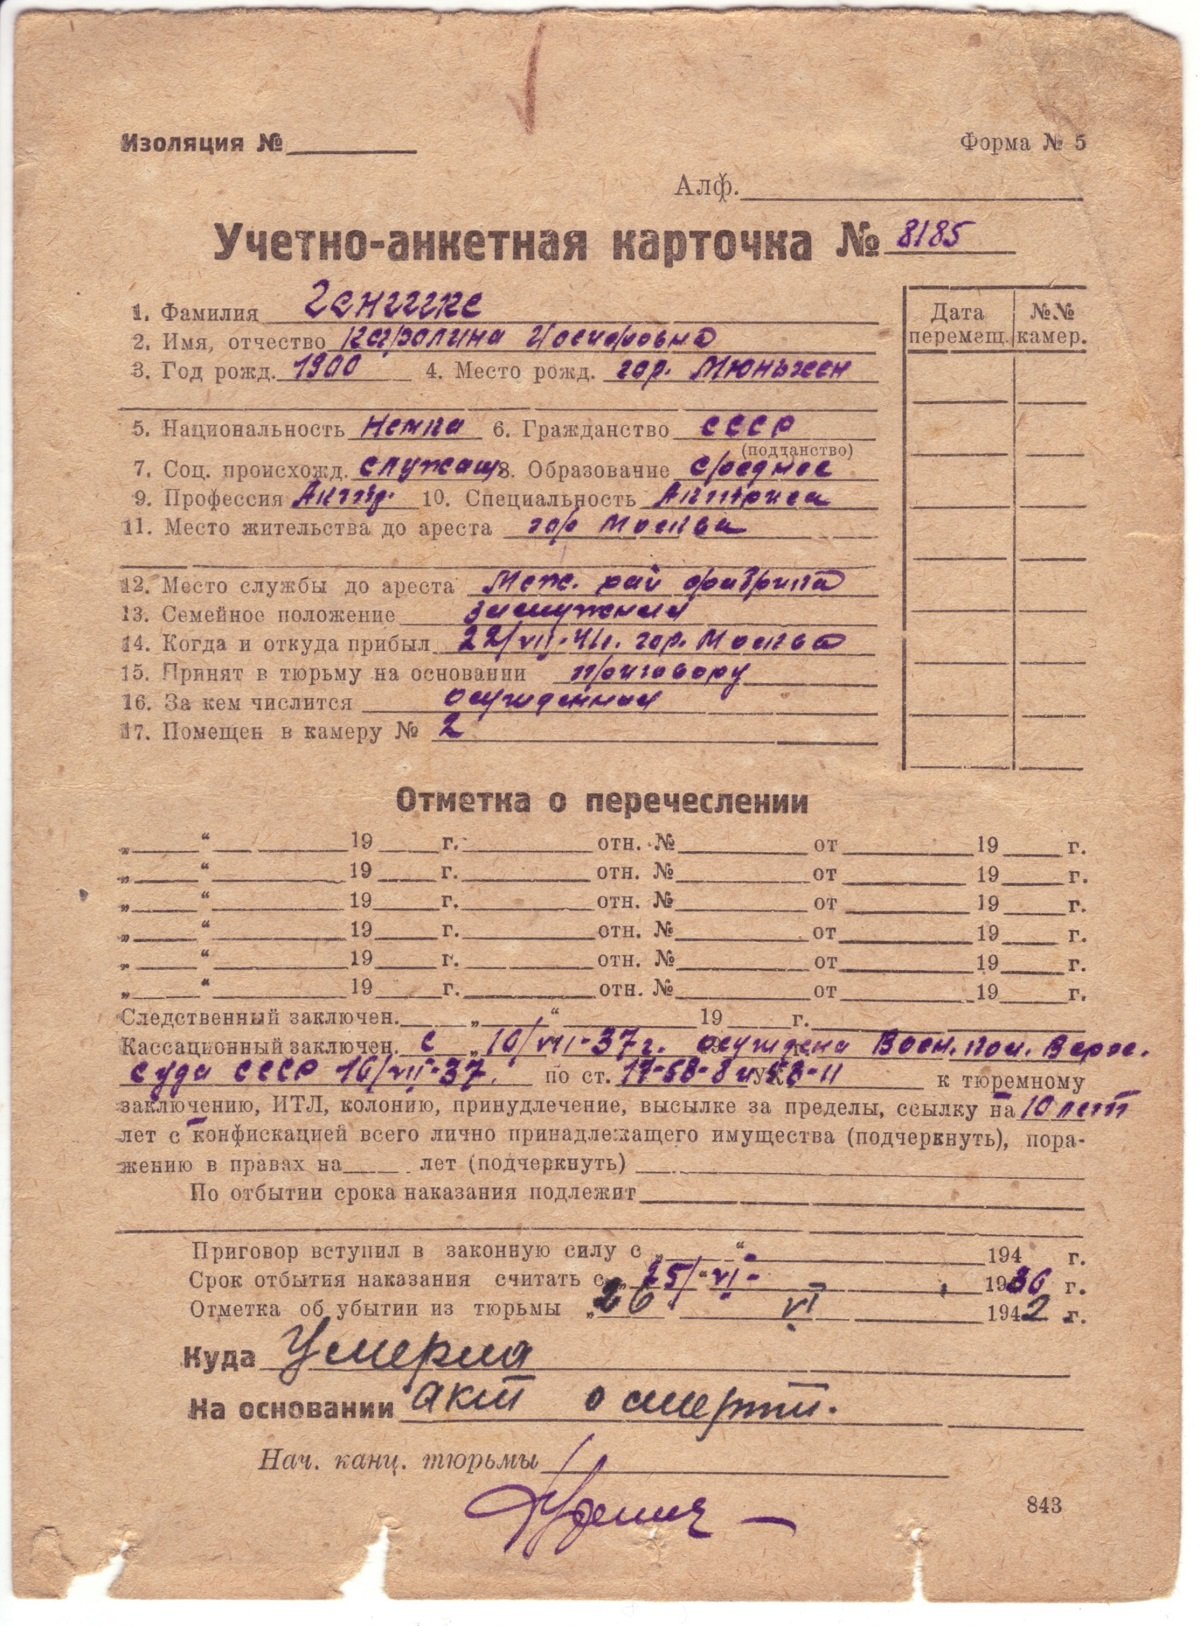 Изоляция №
Форма № 5
Алф.
Учетно-анкетная карточка № 8185
1. Фамилия Генишке
2. Имя, отчество Каролина Иосифовна
3. Год рожд. 1900 4. Место рожд. гор. Мюньхен
5. Национальность Немка 6. Гражданство СССР
(подданство)
7. Соц. происхожд. служащ 8. Образование среднее
9. Профессия 10. Специальность Актриса
11. Место жительства до ареста гор Москва
12. Место службы до ареста Меж. рай фабрика
13. Семейное положение замужняя
14. Когда и откуда прибыл 22/VII-41г. гор. Москва
15. Принят в тюрьму на основании приговору
16. За кем числится осужденная
17. Помещен в камеру № 2
Дата перемещ. №№ камер.
Отметка о перечеслении
„ “ 19 г. отн. № от 19 г.
„ “ 19 г. отн. № от 19 г.
„ “ 19 г. отн. № от 19 г.
„ “ 19 г. отн. № от 19 г.
„ “ 19 г. отн. № от 19 г.
„ “ 19 г. отн. № от 19 г.
Следственный заключен. „ “ 19 г.
Кассационный заключен. с „ 16/VII-37г. осуждена Воен. кол. Верх.
суда СССР 16/VII-37. по ст. 17-58-8 и 58-11 к тюремному
заключению, ИТЛ, колонию, принудлечение, высылке за пределы, ссылку на 10 лет
лет с конфискацией всего лично принадлежащего имущества (подчеркнуть), пора-
жению в правах на лет (подчеркнуть)
По отбытии срока наказания подлежит
Приговор вступил в законную силу с „ “ 194 г.
Срок отбытия наказания считать с „ 25/ “ VI- 1936 г.
Отметка об убытии из тюрьмы „ 26 VI 1942 г.
Куда Умерла
На основании акт о смерти.
Нач. канц. тюрьмы
843